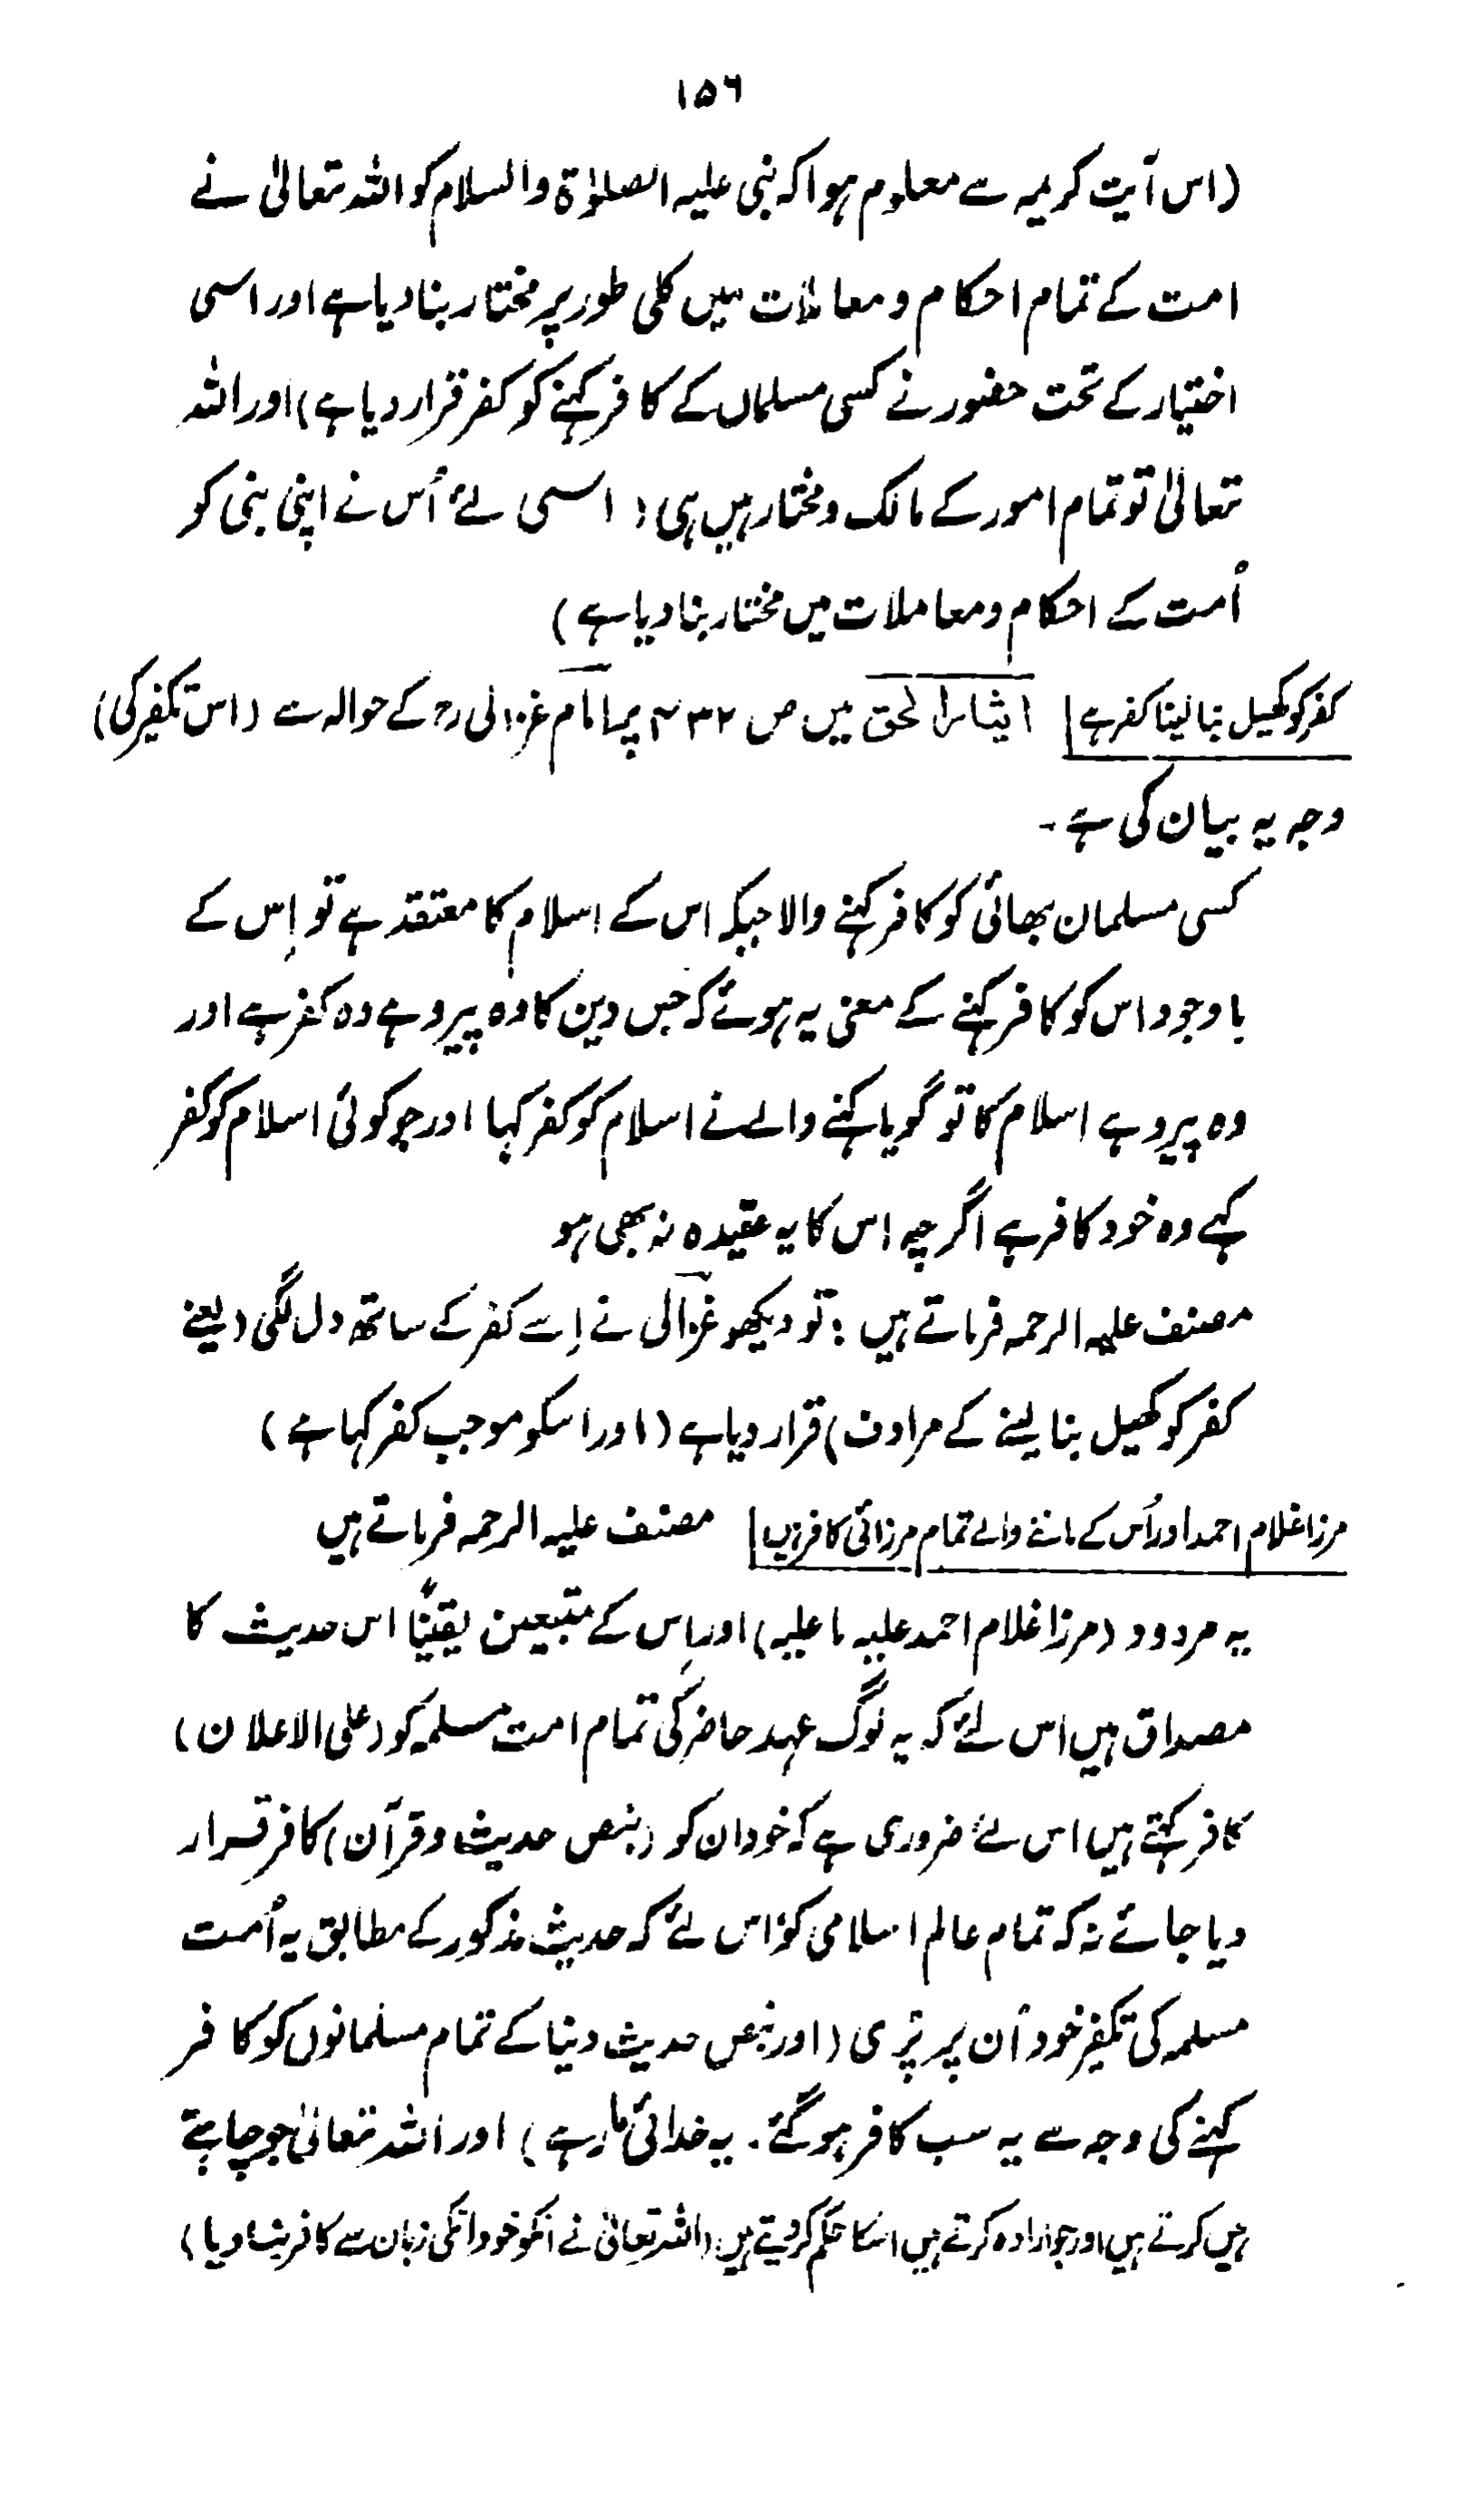 ۱۵۶
(اس آیت کریمہ سے معلوم ہوا کہ نبی علیہ الصلوٰۃ والسلام کو اللہ تعالیٰ نے
امت کے تمام احکام و معاملات میں کلی طور پر مختار بنا دیا ہے اور اسی
اختیار کے تحت حضور نے کسی مسلماں کے کافر کہنے کو کفر قرار دیا ہے) اور اللہ
تعالیٰ تو تمام امور کے مالک و مختار ہیں ہی (اسی لئے اُس نے اپنی نبی کو
اُمت کے احکام و معاملات میں مختار بنا دیا ہے)
کفر کو کھیل بنا لینا کفر ہے| ایثار الحق میں ص ۴۳۲ پر امام غزالی رح کے حوالہ سے (اس تکفیر کی)
وجہ یہ بیان کی ہے۔
کسی مسلمان بھائی کو کافر کہنے والا جبکہ اس کے اسلام کا معتقد ہے تو اِس کے
باوجود اس کو کافر کہنے کے معنی یہ ہوئے کہ جس دین کا وہ پیرو ہے وہ کفر ہے اور
وہ پیرو ہے اسلام کا تو گویا کہنے والے نے اسلام کو کفر کہا اور جو کوئی اسلام کو کفر
کہے وہ خود کافر ہے اگرچہ اس کا یہ عقیدہ نہ بھی ہو
مصنف علیہ الرحمہ فرماتے ہیں: تو دیکھو غزالی نے اِسے کفر کے ساتھ دل لگی (یعنی
کفر کو کھیل بنا لینے کے مرادف) قرار دیا ہے (اور اسکو موجب کفر کہا ہے)
مرزا غلام احمد اور اُس کے ماننے والے تمام مرزائی کافر ہیں| مصنف علیہ الرحمہ فرماتے ہیں
یہ مردود (مرزا غلام احمد علیہ ما علیہ) اور اِس کے متبعین یقیناً اس حدیث کا
مصداق ہیں اس لئے کہ یہ لوگ عہد حاضر کی تمام امت مسلمہ کو (علی الاعلان)
کافر کہتے ہیں اس لئے ضروری ہے کہ خود ان کو (بنص حدیث و قرآن) کافر قرار
دیا جائے نہ کہ تمام عالم اسلامی کو اس لئے کہ حدیث مذکور کے مطابق یہ اُمت
مسلمہ کی تکفیر خود اُن پر پڑی (اور بنص حدیث دنیا کے تمام مسلمانوں کو کافر
کہنے کی وجہ سے یہ سب کافر ہو گئے۔ یہ خدائی مار ہے) اور اللہ تعالیٰ جو چاہتے
ہیں کرتے ہیں اور جو ارادہ کرتے ہیں اسکا حکم کر دیتے ہیں (اللہ تعالیٰ نے انکو خود انکی زبان سے کافر بنا دیا)